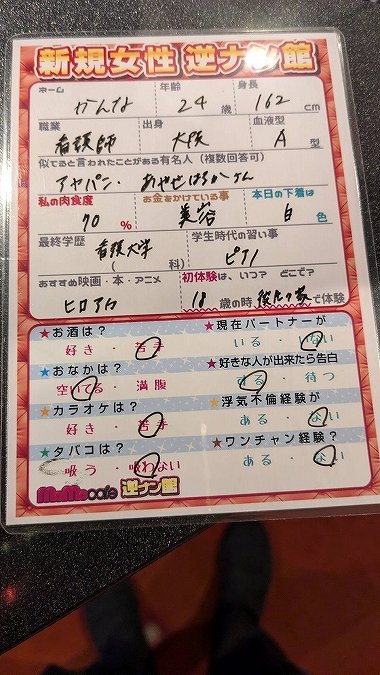 新規女性 逆ナン館
ネーム 年齢 身長
かんな 24 歳 162 cm
職業 出身 血液型
看護師 大阪 A 型
似てると言われたことがある有名人(複数回答可)
アヤパン・あやせはるかさん
私の肉食度 お金をかけている事 本日の下着は
70 % 美容 白 色
最終学歴 学生時代の習い事
看護大学 ( 科) ピアノ
おすすめ映画・本・アニメ 初体験は、いつ? どこで?
ヒロアカ 18 歳の時 彼氏の家 で体験
★お酒は? ★現在パートナーが
好き・苦手 いる・ない
★おなかは? ★好きな人が出来たら告白
空いてる・満腹 する・待つ
★カラオケは? ★浮気不倫経験が
好き・苦手 ある・ない
★タバコは? ★ワンチャン経験?
吸う・吸わない ある・ない
MoMocafe 逆ナン館